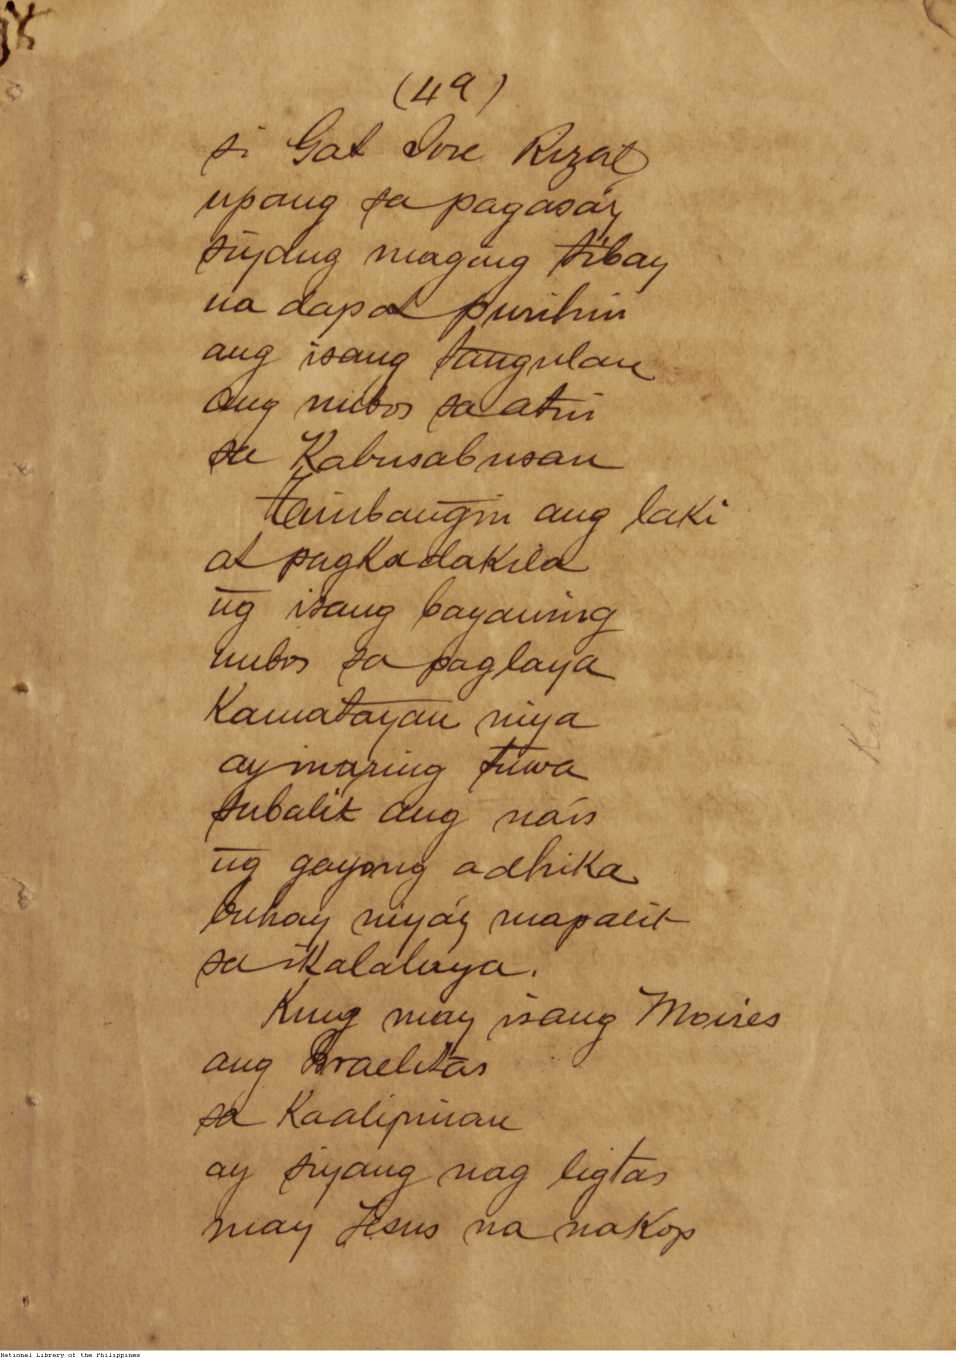 (49)
si Gat Jose Rizal
upang sa pagasa'y
siyang maging tibay
na dapat purihin
ang isang tangulan
ang nubos sa atin
sa Kabusabusan
Timbangin ang laki
at pagkadakila
ng isang bayaning
nubos sa paglaya
Kamatayan niya
ay maging tuwa
subalit ang nais
ng gayong adhika
buhay niya'y mapalit
sa ikalalaya.
Kung may isang Moises
ang Israelitas
sa Kaalipinan
ay siyang nag ligtas
may Jesus na nakop
National Library of the Philippines